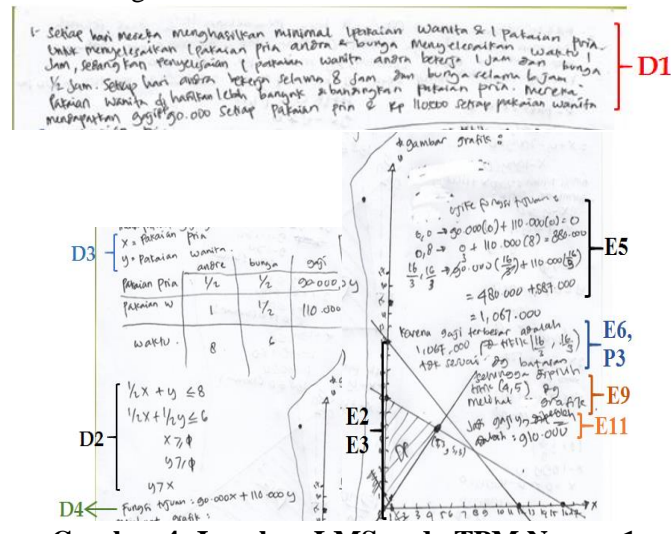 1. Setiap hari mereka menghasilkan minimal 1 pakaian wanita & 1 pakaian pria.
Untuk menyelesaikan 1 pakaian pria andra & bunga menyelesaikan waktu 1
Jam, sedangkan penyelesaian 1 pakaian wanita andra bekerja 1 jam dan bunga
1/2 Jam. Setiap hari andra bekerja selama 8 jam dan bunga selama 6 jam.
Pakaian wanita di hasilkan lebih banyak dibandingkan pakaian pria. mereka
mendapatkan gaji 90.000 setiap pakaian pria & Rp 110.000 setiap pakaian wanita
D1
D3
x = Pakaian Pria
y = Pakaian wanita.
andre bunga gaji
Pakaian Pria 1/2 1/2 90.000
Pakaian W 1 1/2 110.000
waktu 8 6
D2
1/2x + y ≤ 8
1/2x + 1/2y ≤ 6
x ≥ 0
y ≥ 0
y > x
D4
Fungsi tujuan = 90.000x + 110.000y
grafik :
* gambar grafik :
fungsi tujuan :
0,0 → 90.000(0) + 110.000(0) = 0
0,8 → 0 + 110.000(8) = 880.000
16/3, 16/3 → 90.000(16/3) + 110.000(16/3)
= 480.000 + 587.000
= 1,067.000
E5
Karena gaji terbesar adalah
1,067,000 titik (16/3, 16/3)
tdk sesuai dg batasan
E6,
P3
sehingga dipilih
titik (4,5) dg
melihat grafik
E9
Jadi gaji yg diperoleh
adalah : 910.000
E11
E2
E3
DP
Gambar 4. Jawaban LMS pada TPM Nomor 1